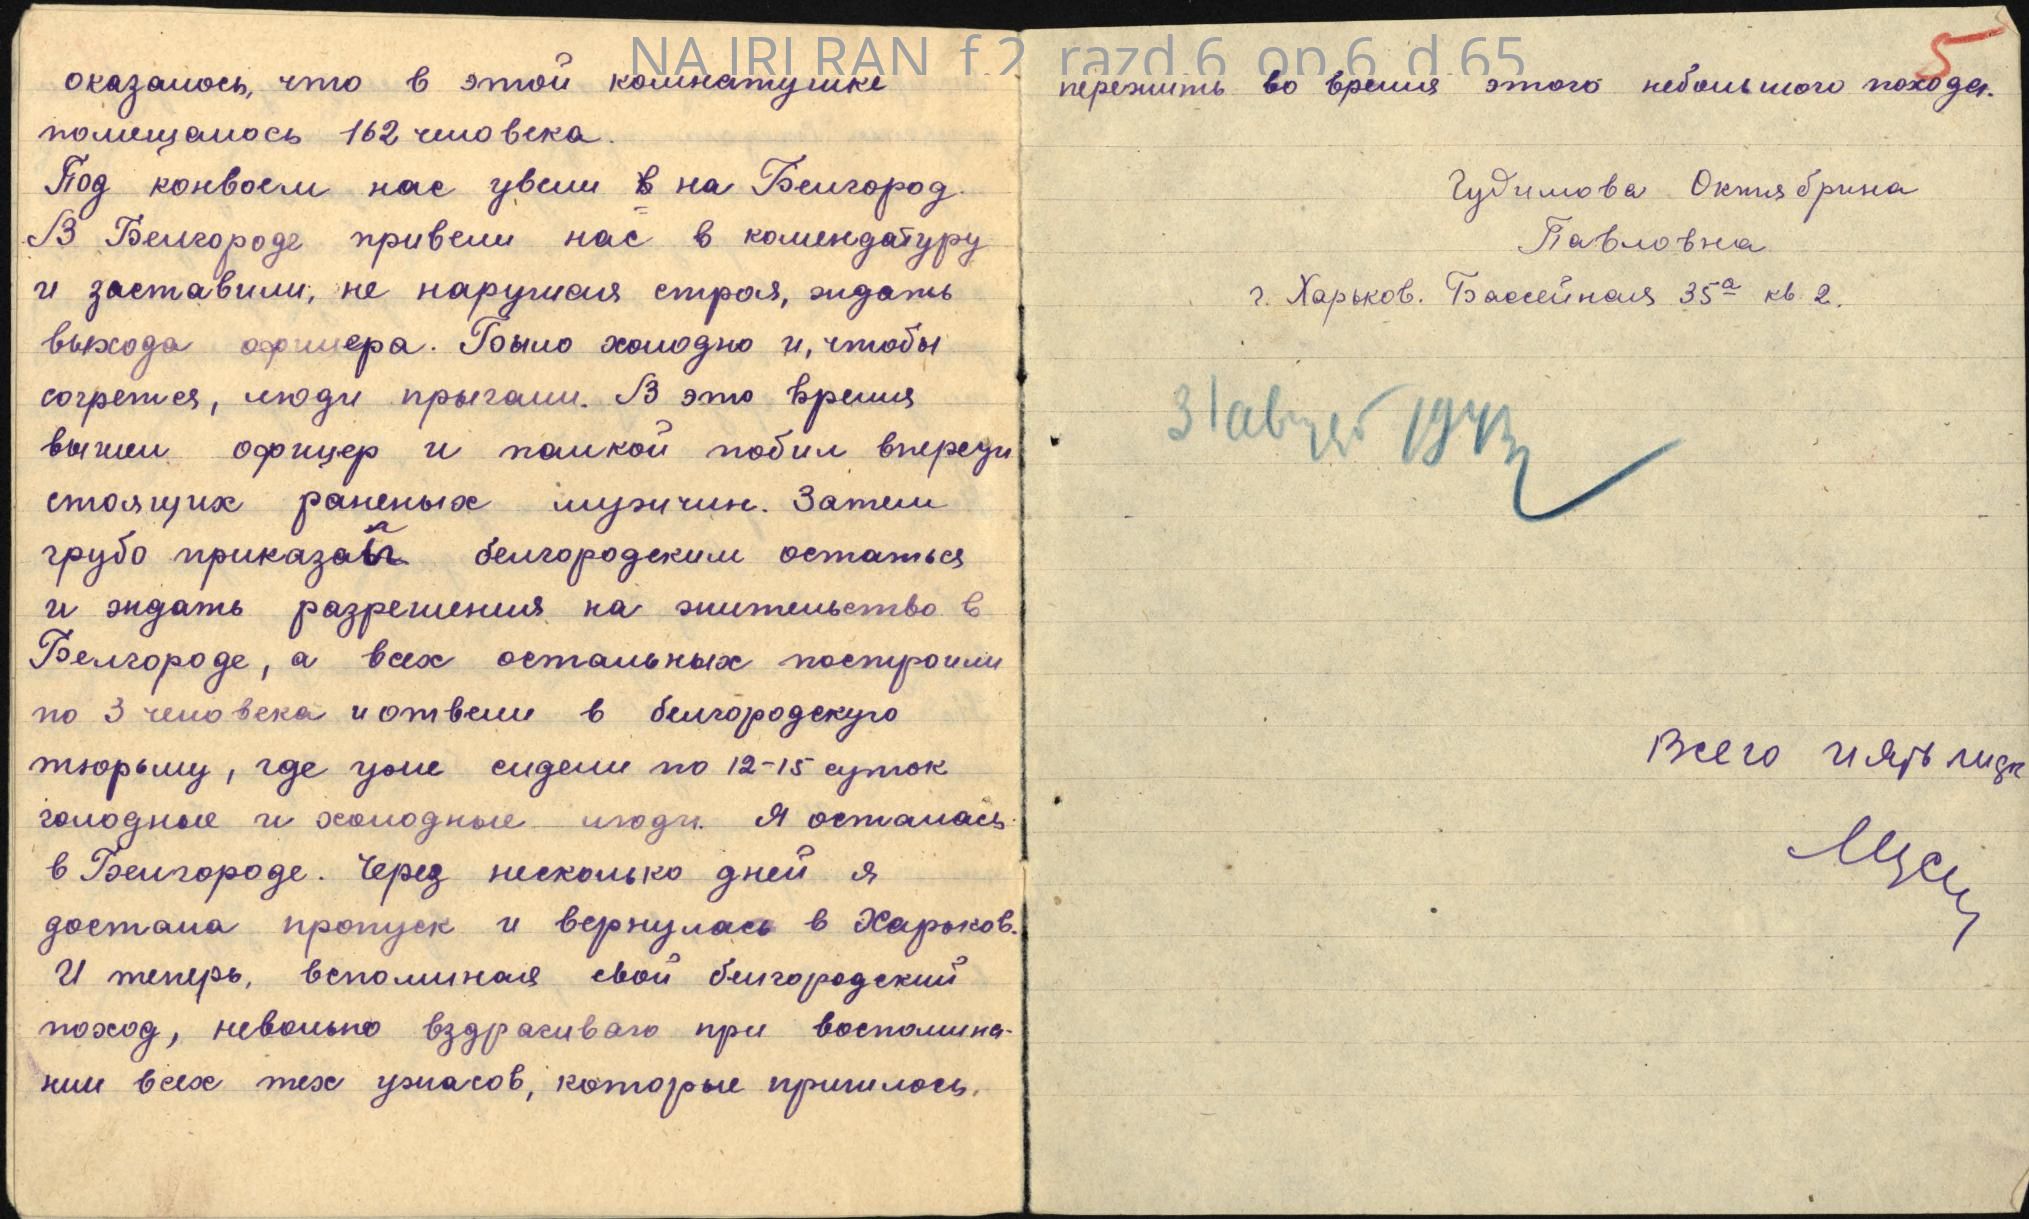 NA IRI RAN f.2 razd.6 op.6 d.65
оказалось, что в этой комнатушке
помещалось 162 человека.
Под конвоем нас увели в на Белгород.
В Белгороде привели нас в комендатуру
и заставили, не нарушая строя, ждать
выхода офицера. Было холодно и, чтобы
согретея, люди прыгали. В это время
вышел офицер и палкой побил впереди
стоящих раненых мужчин. Затем
грубо приказал белгородским остаться
и ждать разрешения на жительство в
Белгороде, а всех остальных построили
по 3 человека и отвели в белгородскую
тюрьму, где уже сидели по 12-15 суток
голодные и холодные люди. Я осталась
в Белгороде. Через несколько дней я
достала пропуск и вернулась в Харьков.
И теперь, вспоминая свой белгородский
поход, невольно вздрагиваю при воспомина-
нии всех тех ужасов, которые пришлось
5
пережить во время этого небольшого похода.
Гудимова Октябрина
Павловна
г. Харьков. Бассейная 35а кв 2.
31 август 1943
Всего пять лист